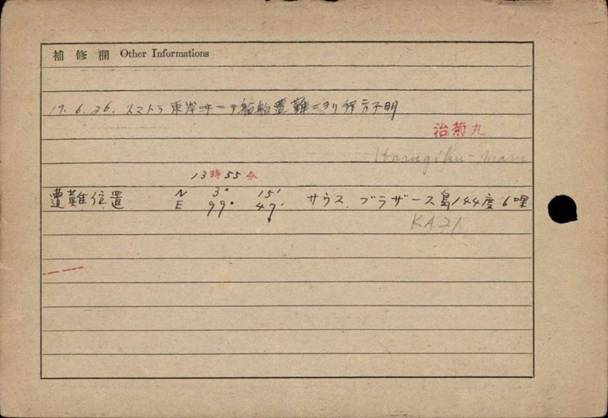 補修欄 Other Informations
19.6.26. スマトラ東岸沖ニテ船舶遭難ニヨリ行方不明
治菊丸
Harugiku-maru
13時55分
遭難位置 N 3° 15' サウス、ブラザース島144度6哩
E 99° 47'
KA21